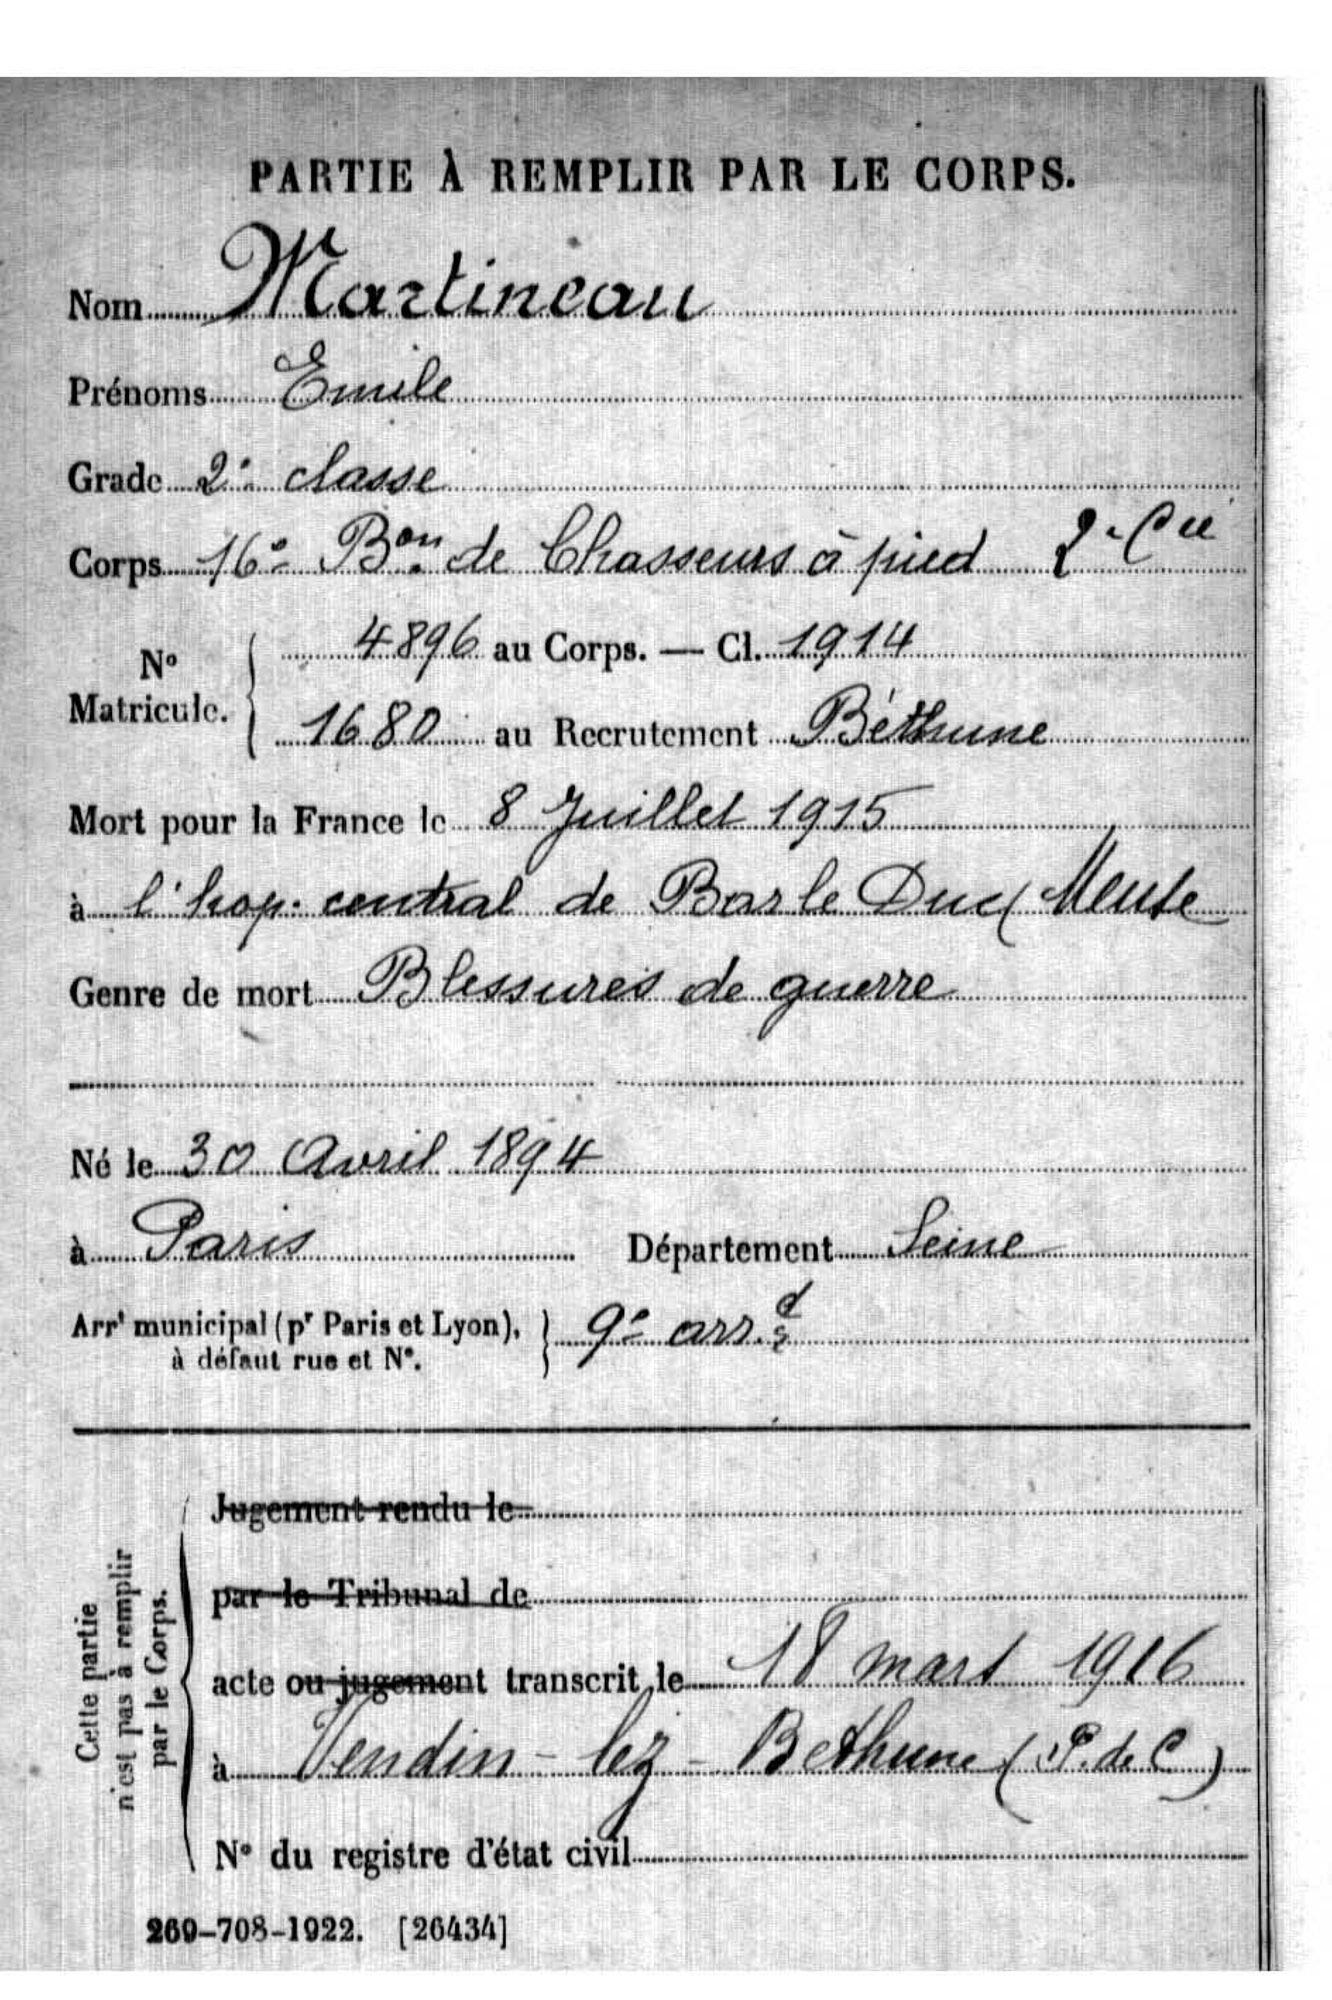 PARTIE À REMPLIR PAR LE CORPS.
Nom Martineau
Prénoms Emile
Grade 2e classe
Corps 16e Bon de Chasseurs à pied 2e Cie
No Matricule. 4896 au Corps. — Cl. 1914
1680 au Recrutement Béthune
Mort pour la France le 8 Juillet 1915
à l'hop. central de Bar le Duc (Meuse
Genre de mort Blessures de guerre
Né le 30 Avril 1894
à Paris Département Seine
Arrt municipal (pr Paris et Lyon), à défaut rue et No. 9e arr.d
Cette partie n'est pas à remplir par le Corps.
Jugement rendu le
par le Tribunal de
acte ou jugement transcrit le 18 mars 1916
à Vendin-lez-Bethune (P. de C)
No du registre d'état civil
269-708-1922. [26434]